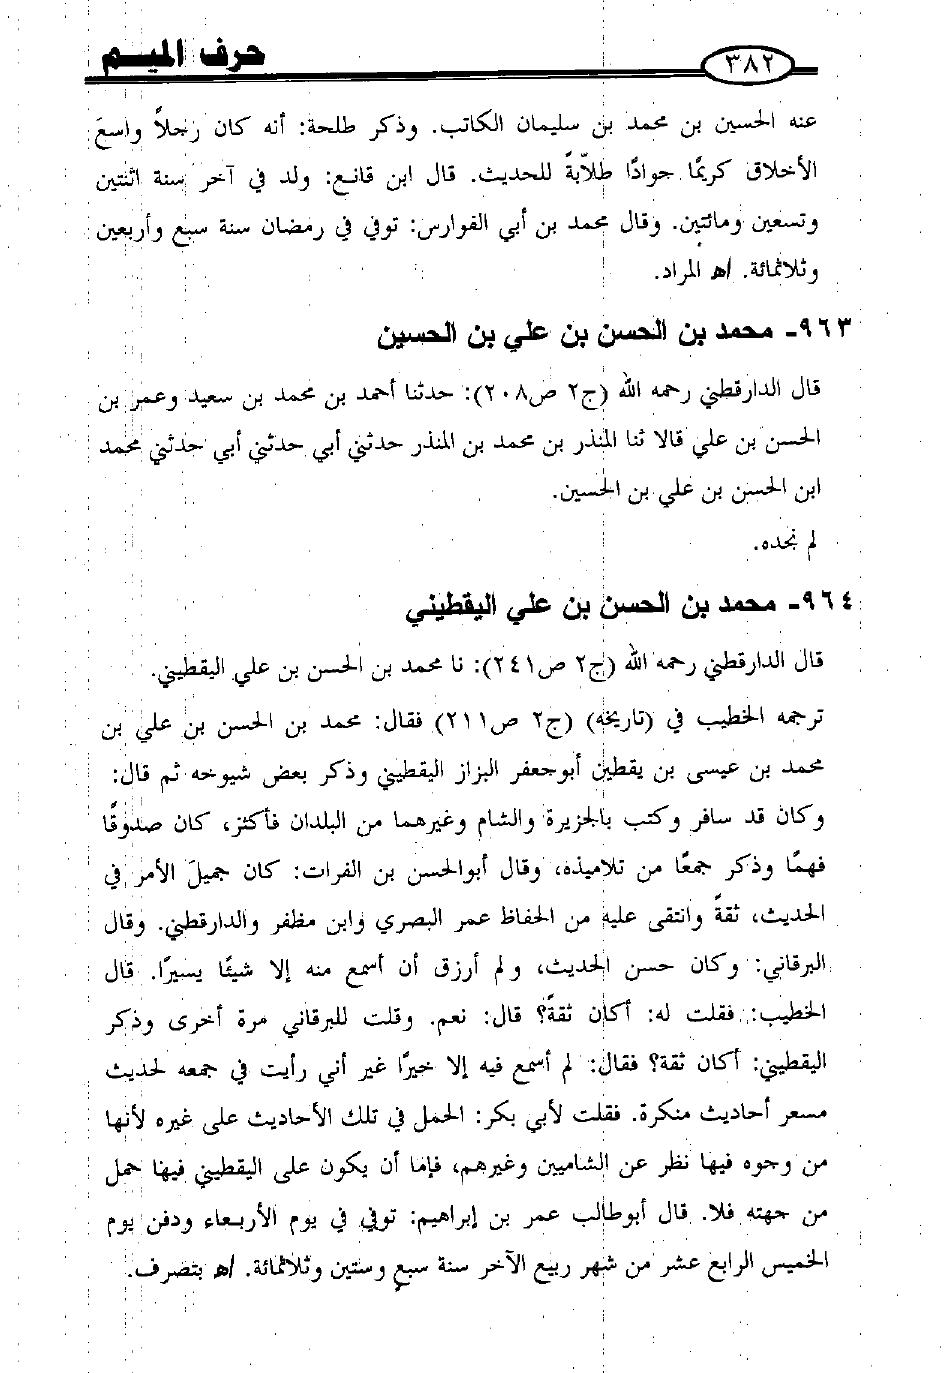 ٣٨٢ حرف الميم
عنه الحسين بن محمد بن سليمان الكاتب. وذكر طلحة: أنه كان رجلاً واسعَ
الأخلاق كريمًا جوادًا طلّابةً للحديث. قال ابن قانع: ولد في آخر سنة اثنتين
وتسعين ومائتين. وقال محمد بن أبي الفوارس: توفي في رمضان سنة سبع وأربعين
وثلاثمائة. اهـ المراد.
٩٦٣- محمد بن الحسن بن علي بن الحسين
قال الدارقطني رحمه الله (ج٢ ص٢٠٨): حدثنا أحمد بن محمد بن سعيد وعمر بن
الحسن بن علي قالا ثنا المنذر بن محمد بن المنذر حدثني أبي حدثني أبي حدثني محمد
ابن الحسن بن علي بن الحسين.
لم نجده.
٩٦٤- محمد بن الحسن بن علي اليقطيني
قال الدارقطني رحمه الله (ج٢ ص٢٤١): نا محمد بن الحسن بن علي اليقطيني.
ترجمه الخطيب في (تاريخه) (ج٢ ص٢١١) فقال: محمد بن الحسن بن علي بن
محمد بن عيسى بن يقطين أبوجعفر البزاز اليقطيني وذكر بعض شيوخه ثم قال:
وكان قد سافر وكتب بالجزيرة والشام وغيرهما من البلدان فأكثر، كان صدوقًا
فهمًا وذكر جمعًا من تلاميذه، وقال أبوالحسن بن الفرات: كان جميلَ الأمر في
الحديث، ثقةً وانتقى عليه من الحفاظ عمر البصري وابن مظفر والدارقطني. وقال
البرقاني: وكان حسن الحديث، ولم أرزق أن أسمع منه إلا شيئًا يسيرًا. قال
الخطيب: فقلت له: أكان ثقةً؟ قال: نعم. وقلت للبرقاني مرة أخرى وذكر
اليقطيني: أكان ثقة؟ فقال: لم أسمع فيه إلا خيرًا غير أني رأيت في جمعه لحديث
مسعر أحاديث منكرة. فقلت لأبي بكر: الحمل في تلك الأحاديث على غيره لأنها
من وجوه فيها نظر عن الشاميين وغيرهم، فإما أن يكون على اليقطيني فيها حمل
من جهته فلا. قال أبوطالب عمر بن إبراهيم: توفي في يوم الأربعاء ودفن يوم
الخميس الرابع عشر من شهر ربيع الآخر سنة سبع وستين وثلاثمائة. اهـ بتصرف.